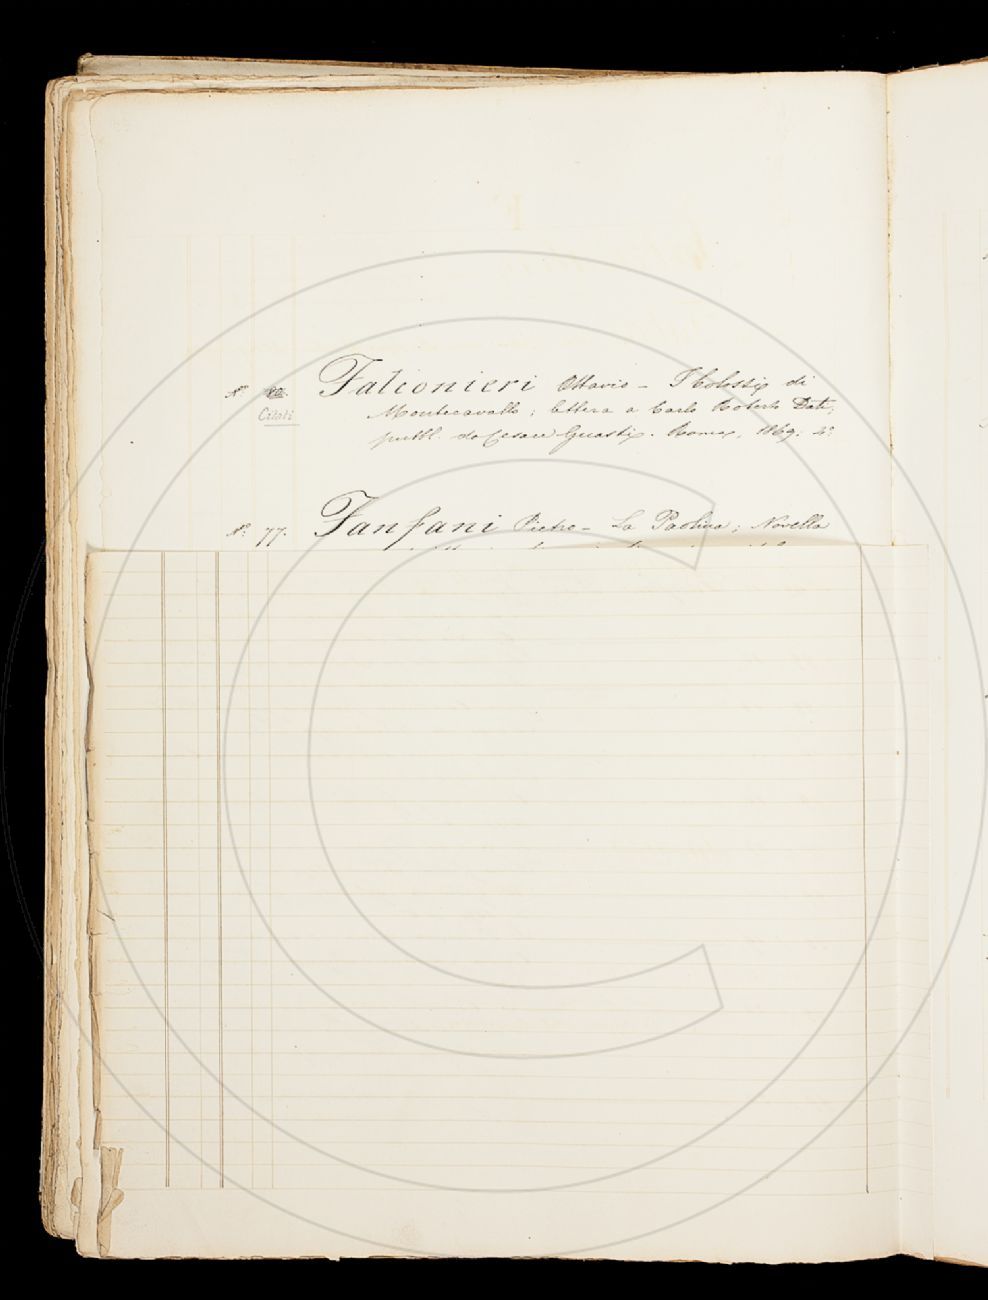 N.
Citati
Falconieri Ottavio - I Colossi di
Montecavallo; lettera a Carlo Roberto Dati,
pubbl. da Cesare Guasti. Roma, 1869: 4°
N: 77. Fanfani Pietro - La Paolina; Novella